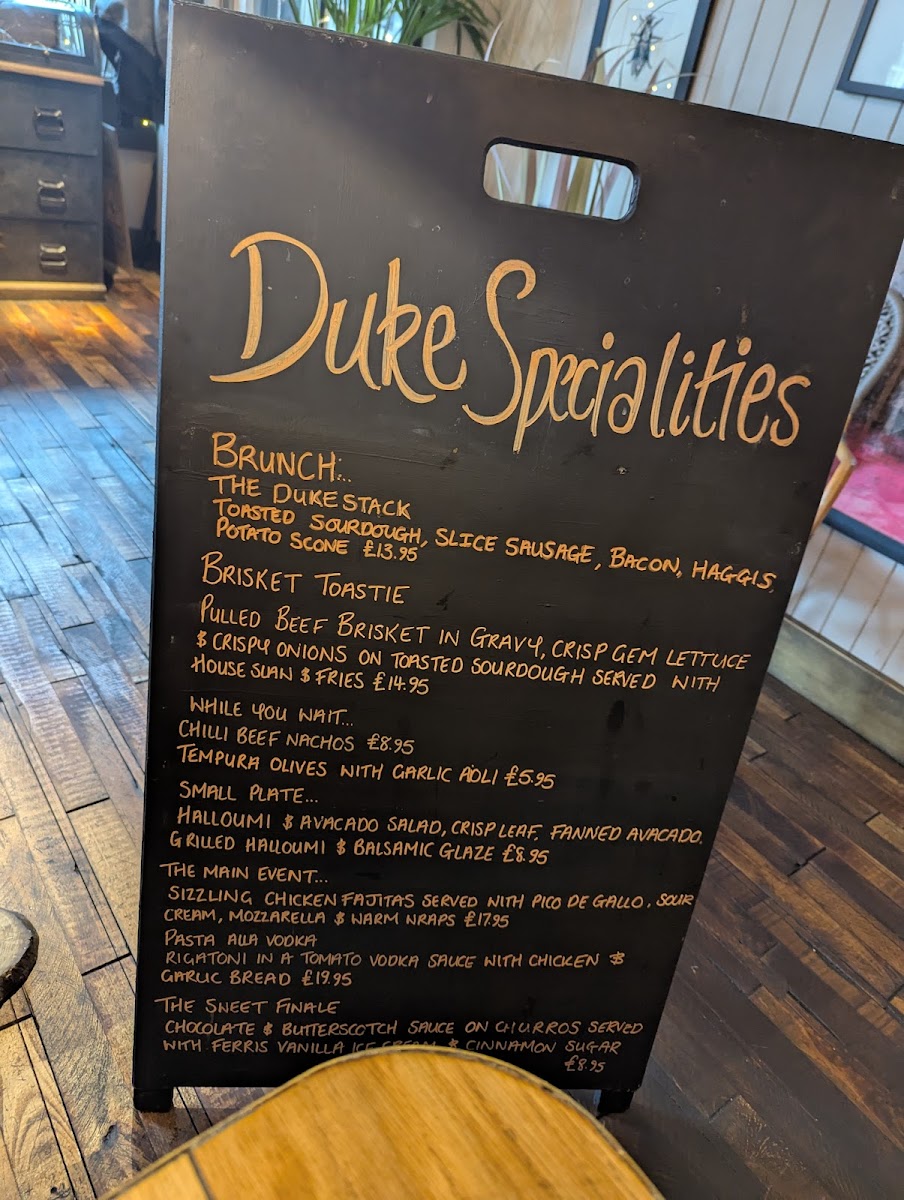 Duke Specialities
BRUNCH...
THE DUKE STACK
TOASTED SOURDOUGH, SLICE SAUSAGE, BACON, HAGGIS,
POTATO SCONE £13.95
BRISKET TOASTIE
PULLED BEEF BRISKET IN GRAVY, CRISP GEM LETTUCE
& CRISPY ONIONS ON TOASTED SOURDOUGH SERVED WITH
HOUSE SLAN & FRIES £14.95
WHILE YOU WAIT...
CHILLI BEEF NACHOS £8.95
TEMPURA OLIVES WITH GARLIC AIOLI £5.95
SMALL PLATE...
HALLOUMI & AVACADO SALAD, CRISP LEAF, FANNED AVACADO,
GRILLED HALLOUMI & BALSAMIC GLAZE £8.95
THE MAIN EVENT...
SIZZLING CHICKEN FAJITAS SERVED WITH PICO DE GALLO, SOUR
CREAM, MOZZARELLA & WARM WRAPS £17.95
PASTA ALLA VODKA
RIGATONI IN A TOMATO VODKA SAUCE WITH CHICKEN &
GARLIC BREAD £19.95
THE SWEET FINALE
CHOCOLATE & BUTTERSCOTCH SAUCE ON CHURROS SERVED
WITH FERRIS VANILLA ICE CREAM & CINNAMON SUGAR
£8.95